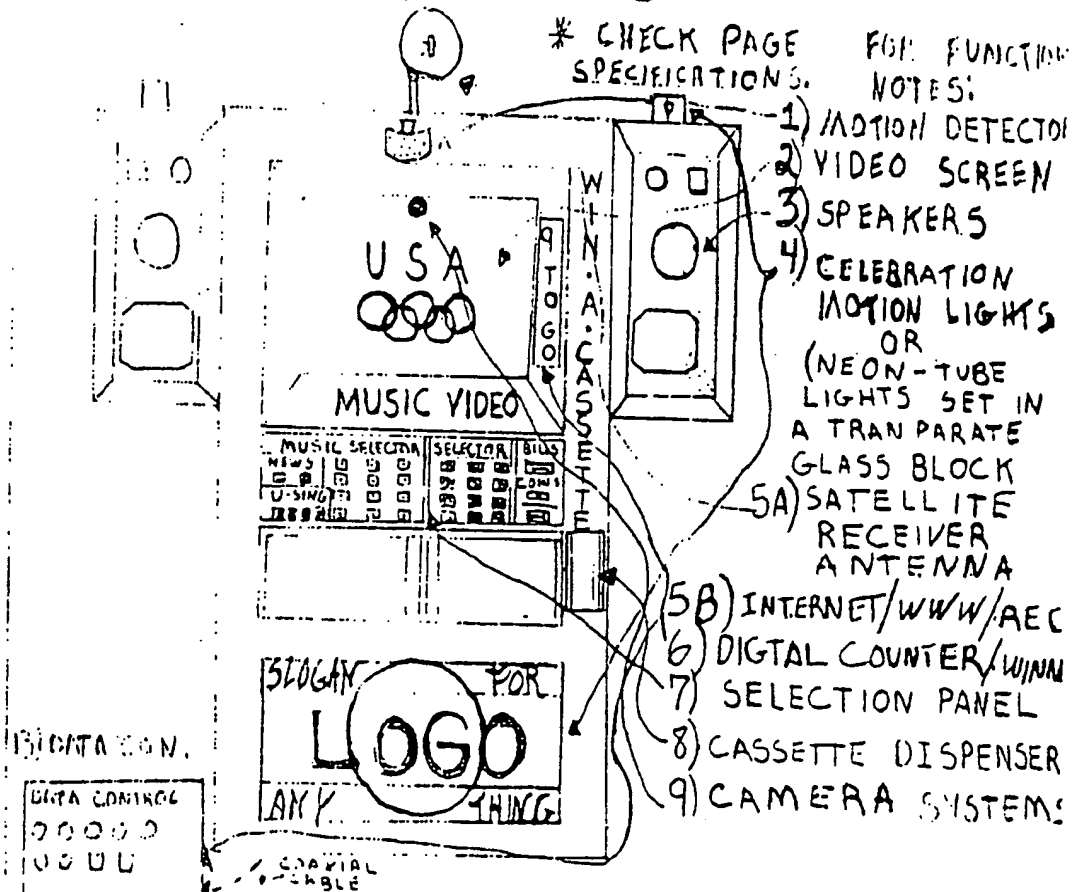 * CHECK PAGE FOR FUNCTION
SPECIFICATIONS. NOTES:
1) MOTION DETECTOR
2) VIDEO SCREEN
3) SPEAKERS
4) CELEBRATION
MOTION LIGHTS
OR
(NEON-TUBE
LIGHTS SET IN
A TRANPARATE
GLASS BLOCK
5A) SATELLITE
RECEIVER
ANTENNA
(5B) INTERNET/WWW/REC
6) DIGTAL COUNTER/WINN
7) SELECTION PANEL
8) CASSETTE DISPENSER
9) CAMERA SYSTEMS
WIN.A.CASSETTE
9 TO GO
USA
MUSIC VIDEO
MUSIC SELECTOR SELECTOR BILLS
NEWS
U-SING
COINS
SLOGAN FOR
LOGO
ANY THING
13) DATA CON.
DATA CONTROL
COAXIAL
CABLE